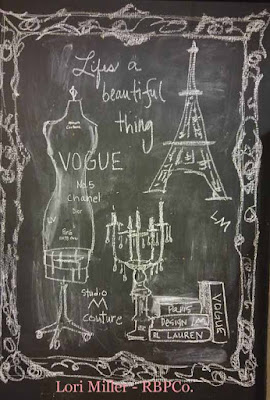 Life's a
beautiful
thing
VOGUE
No. 5
Chanel
Dior
Paris
Studio
Couture
LM
PARIS
DESIGN
R. LAUREN
VOGUE
Lori Miller - RBPCo.